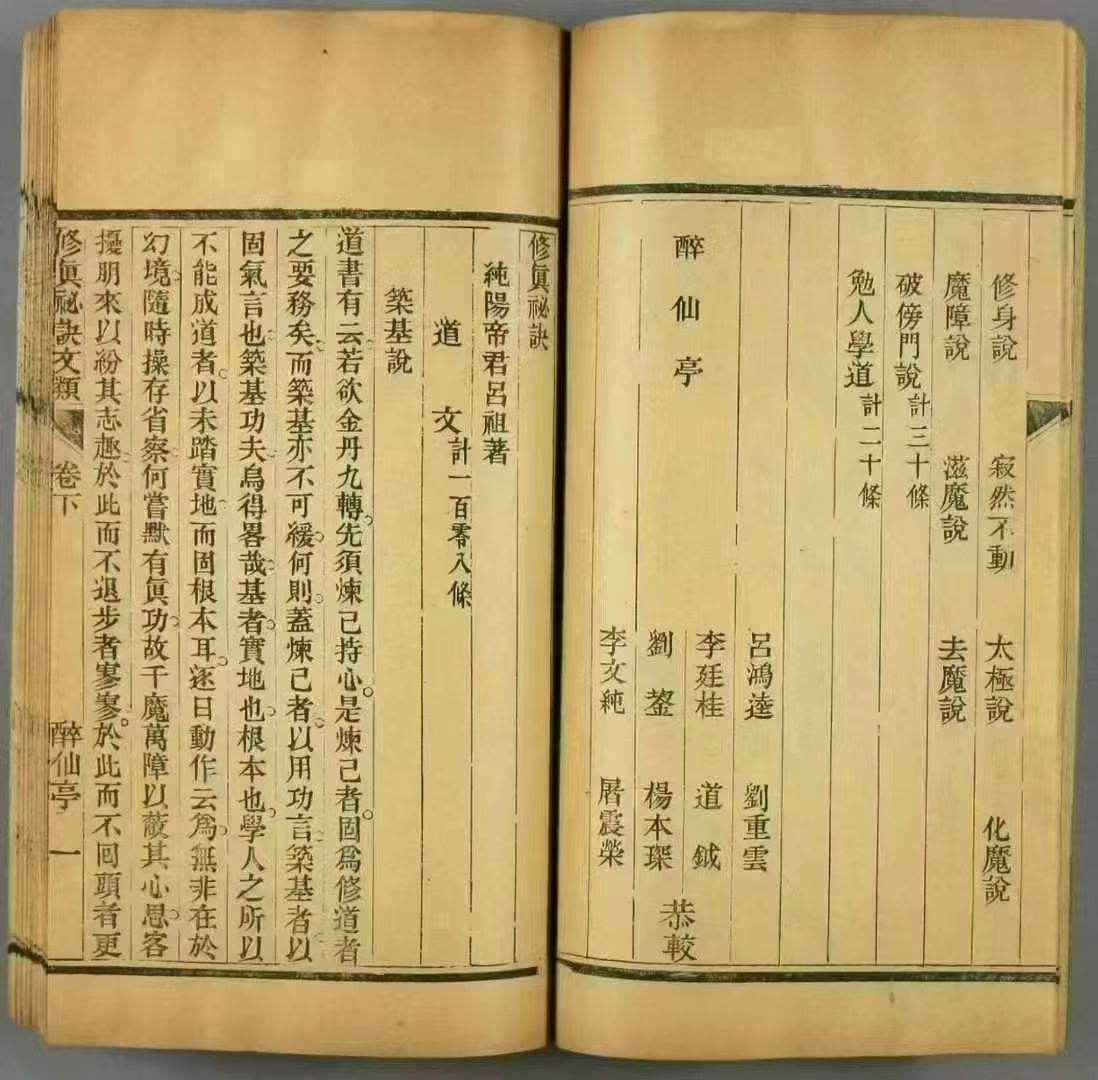 修身說 寂然不動 太極說 化魔說
魔障說 滋魔說 去魔說
破傍門說 計三十條
勉人學道 計二十條
呂鴻逵 劉重雲
李廷桂 道鉞
醉仙亭 劉鋆 楊本琛 恭較
李文純 屠震榮
修眞祕訣
純陽帝君呂祖著
道文 計一百零八條
築基說
道書有云若欲金丹九轉。先須煉己持心。是煉己者。固爲修道者
之要務矣。而築基亦不可緩。何則。蓋煉己者。以用功言。築基者。以
固氣言也。築基功夫。烏得畧哉。基者。實地也。根本也。學人之所以
不能成道者。以未踏實地。而固根本耳。逐日動作云爲。無非在於
幻境。隨時操存省察。何嘗默有眞功。故千魔萬障以蔽其心思。客
擾朋來以紛其志趣。於此而不退步者寥寥。於此而不回頭者更
修眞祕訣文類 卷下 醉仙亭 一